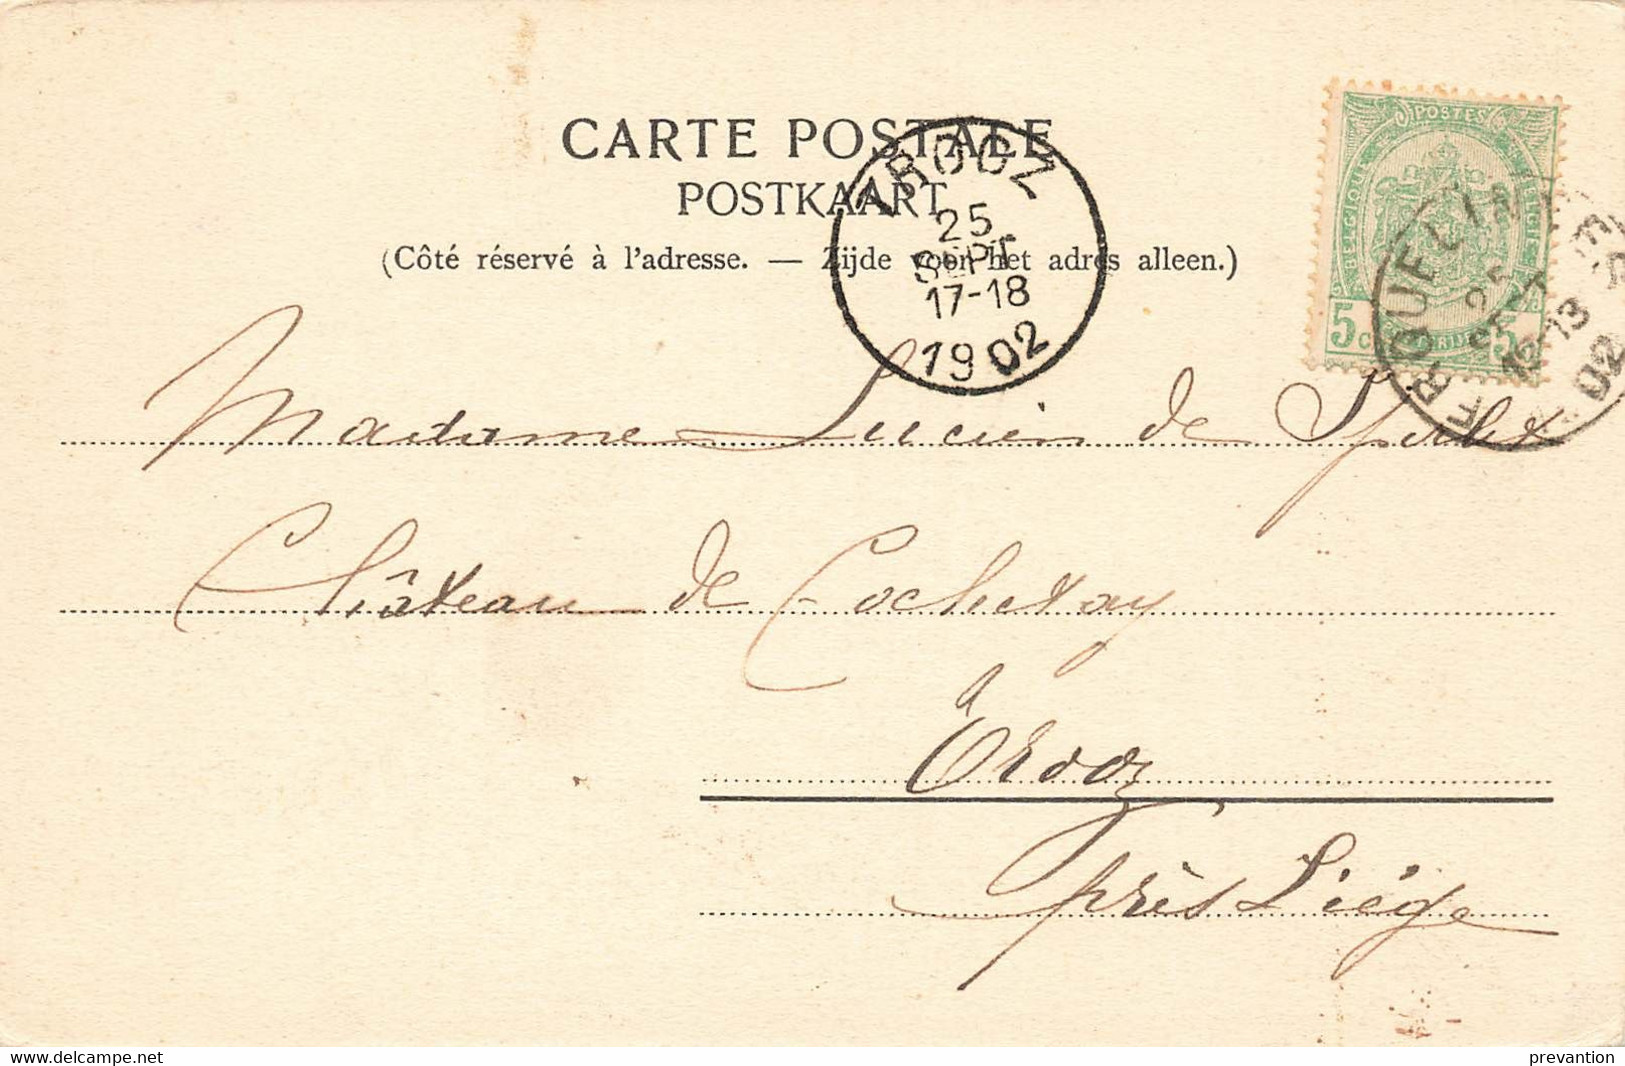 CARTE POSTALE
POSTKAART
(Côté réservé à l'adresse. — Zijde voor het adres alleen.)
TROOZ
25
SEPT
17-18
1902
POSTES
BELGIQUE
BELGIË
5
5
25
SEPT
12-13
02
Madame Lucien de
Château de Cochetay
à
Trooz
près Liège
www.delcampe.net
prevantion